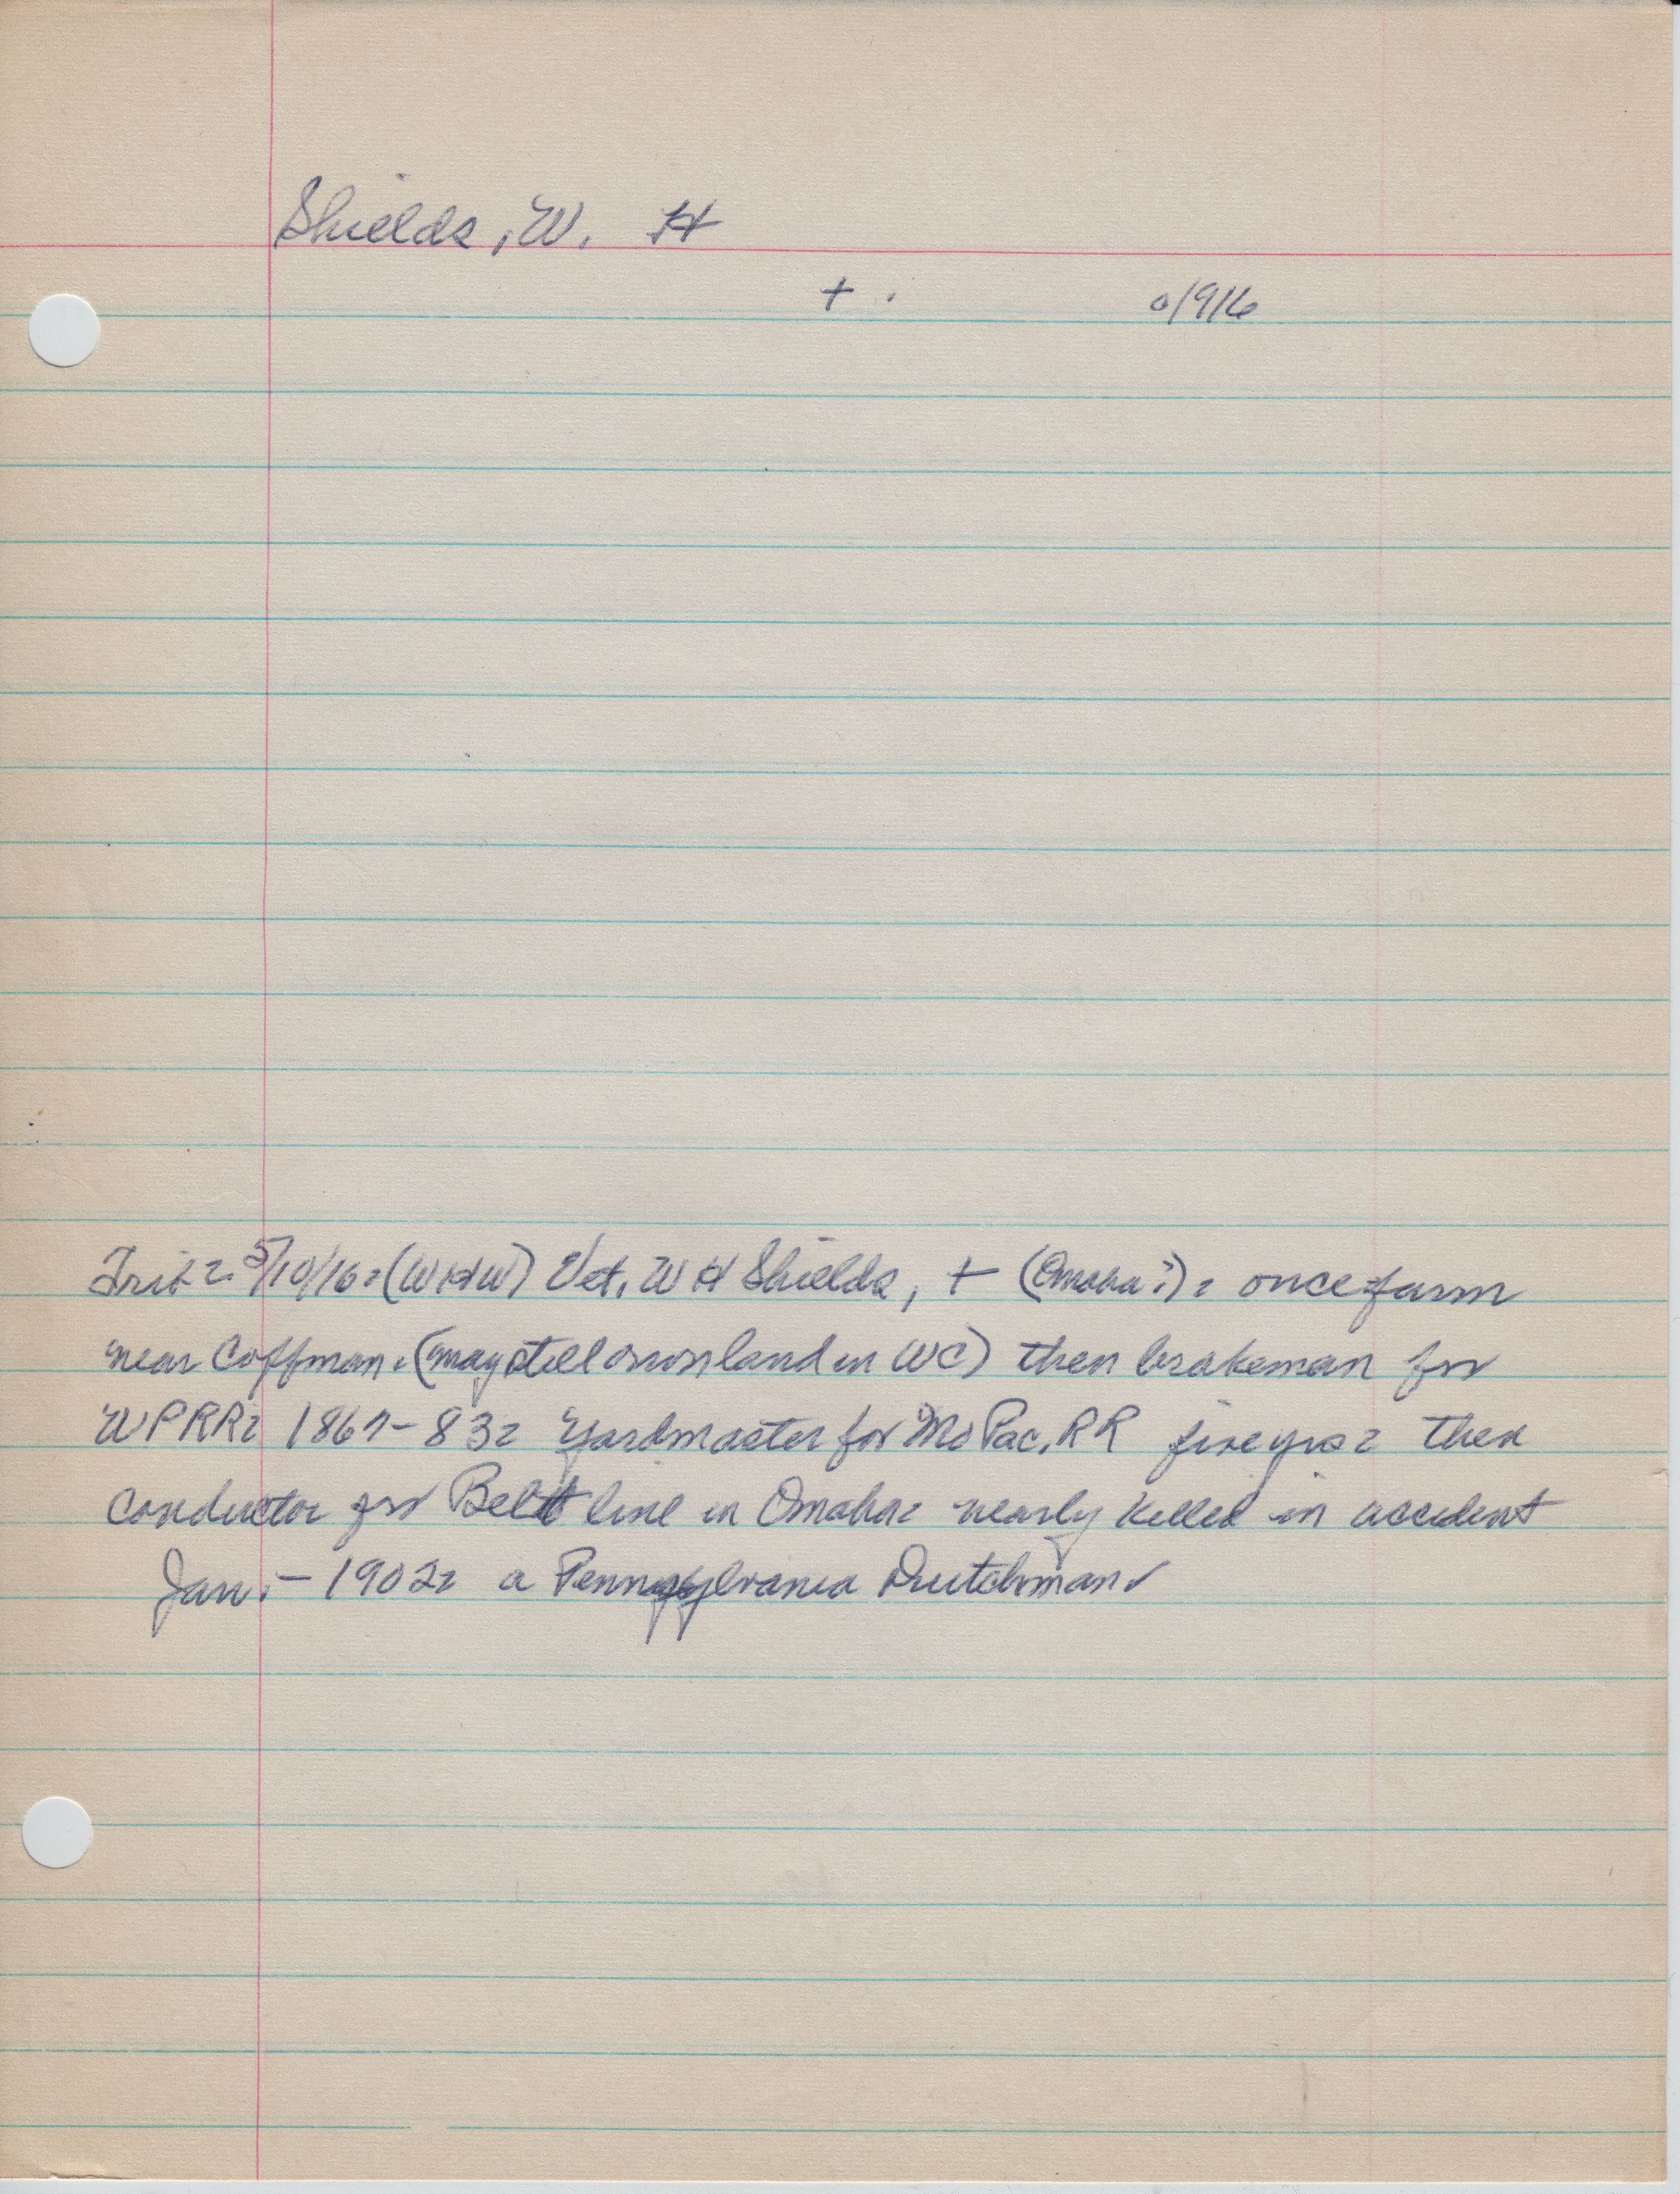 Shields, W. H
+ . o/916
Trib: 5/10/16: (WHW) Vet. W H Shields, + (Omaha?): once farm
near Coffman. (may still own land in WC) then brakeman for
UPRR: 1867-83: Yardmaster for Mo Pac. RR five yrs: then
conductor for Belt line in Omaha: nearly killed in accident
Jan. - 1902: a Pennsylvania Dutchman